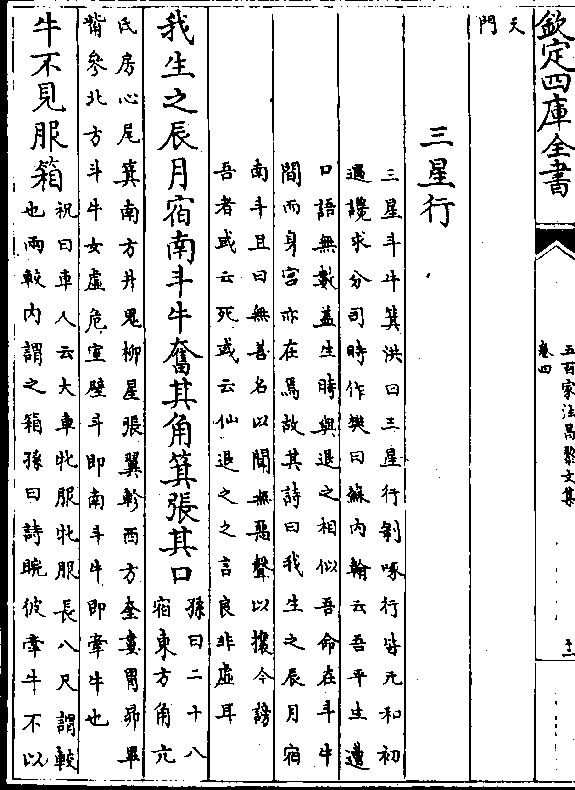 欽定四庫全書
五百家注昌黎文集
卷四
十二
天
門
三星行
三星斗牛箕洪曰三星行剝啄行皆元和初
遇讒求分司時作樊曰蘇內翰云吾平生遭
口語無數蓋生時與退之相似吾命在斗牛
間而身宮亦在焉故其詩曰我生之辰月宿
南斗且曰無善名以聞無惡聲以攘今謗
吾者或云死或云仙退之之言良非虛耳
我生之辰月宿南斗牛奮其角箕張其口
孫曰二十八
宿東方角亢
氐房心尾箕南方井鬼柳星張翼軫西方奎婁胃昴畢
觜參北方斗牛女虛危室壁斗即南斗牛即牽牛也
牛不見服箱
祝曰車人云大車牝服牝服長八尺謂較
也兩較內謂之箱孫曰詩睆彼牽牛不以